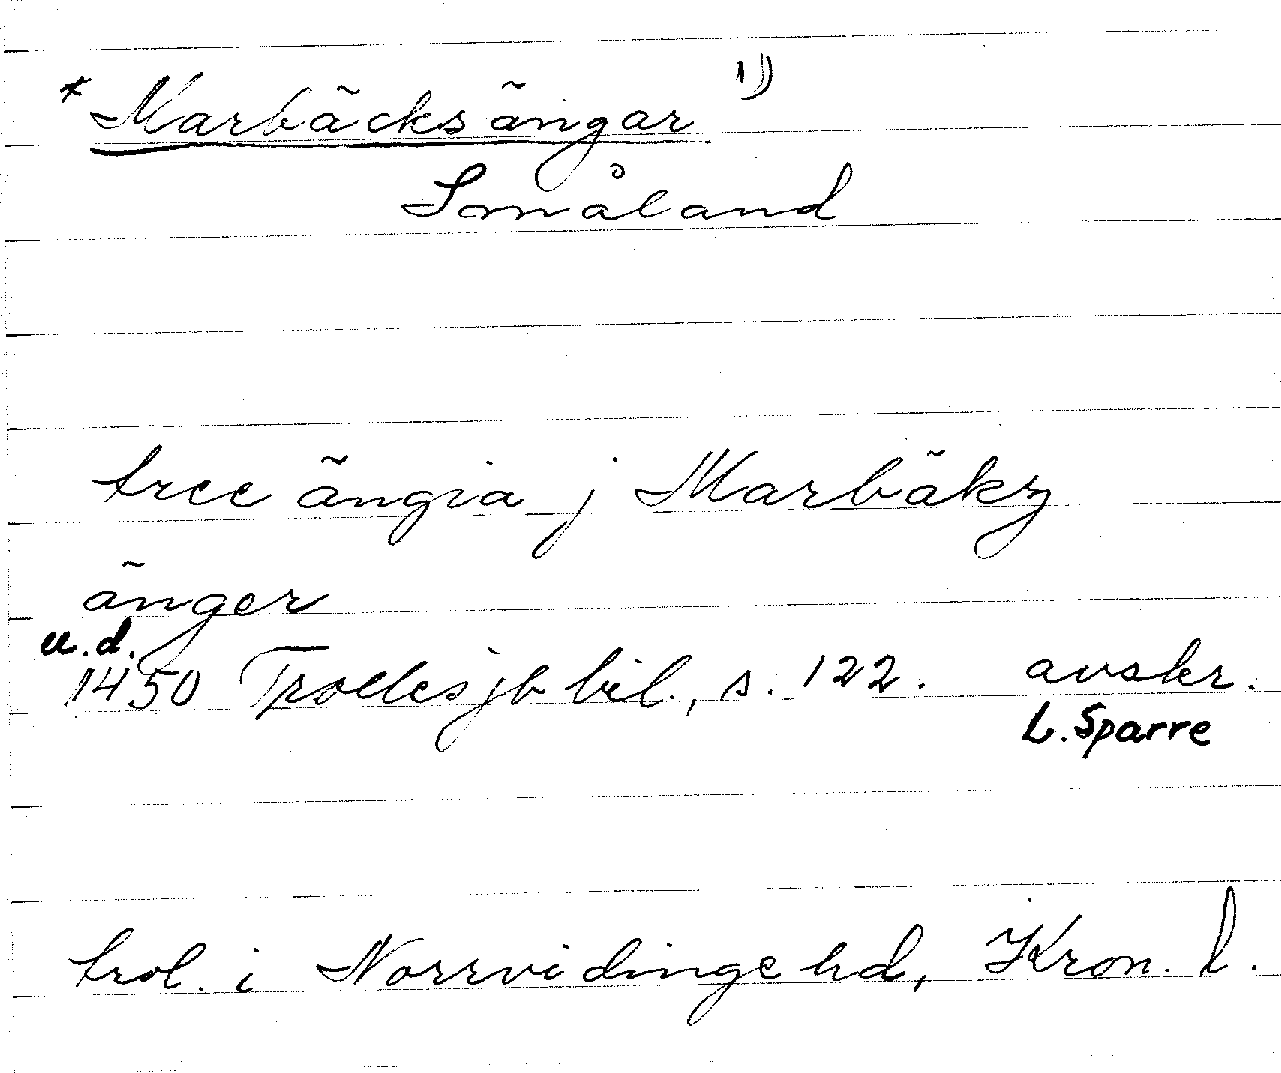 * Marbäcksängar 1)
Småland
tree ängia j Marbäkz
änger
u.d.
1450 Trollesjb bil., s. 122. avskr.
L. Sparre
trol. i Norrvidinge hd, Kron. l.